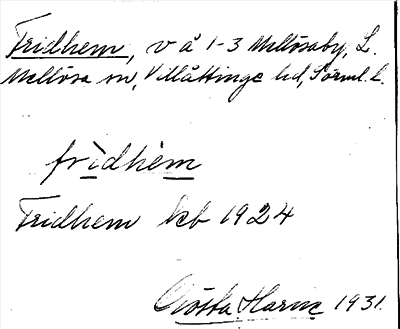 Fridhem, v å 1-3 Mellösaby, L.
Mellösa sn, Villåttinge hd, Sörml. l.
frìdhèm
Fridhem kb 1924
Gösta Harne 1931.